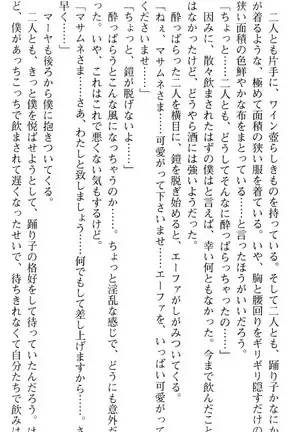 二人とも片手に、ワイン壺らしきものを持っている。そして二人とも、踊り子かなにか
が着るような、極めて面積の狭い服を着ている。いや、胸と腰回りをギリギリ隠すだけの
狭い面積の色鮮やかな布をまとっている……と言ったほうがいいだろう。
「ちょっと……二人とも、どうしてそんなに酔っぱらっちゃったの……」
因みに、散々飲まされたはずの僕はと言えば、幸い何ともなかった。今まで飲んだこと
はなかったけど、どうやら酒には強いようだった。
酔っぱらった二人を横目に、鎧を脱ぎ始めると、エーファがしがみついてくる。
「ねぇ、マサムネさま……可愛がって下さいませ……エーファを、いっぱい可愛がって
くださいませ……」
「ちょっと、鎧が脱げないよ」
酔っぱらうとこんな風になっちゃうのか……。ちょっと淫乱な感じで、どうにも意外だ
った。いや、これはこれで悪くない気もするけど。
「マサムネさま……さあ、わたしと致しましょう……何でもして差し上げますから……。
早く……」
マーヤも後ろから僕に抱きついてくる。
二人とも、きっと僕を悦ばせようとして、踊り子の格好をして待っていたんだろう。け
ど、僕があっちこっちで飲まされて遅くなったせいで、待ちきれなくて自分たちで飲みは